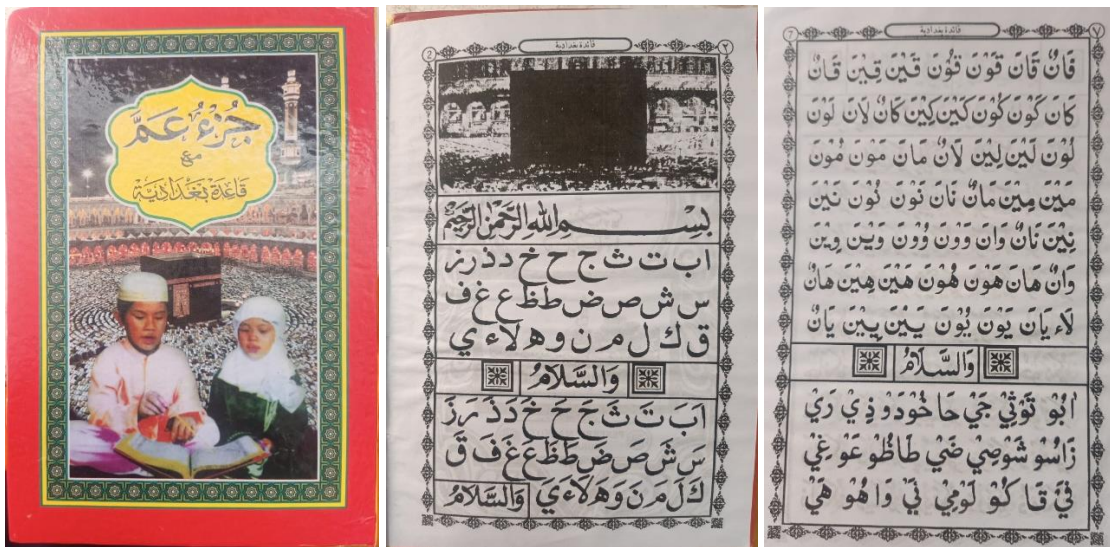 جُزْءُ عَمَّ
مع
قَاعِدَة بَغْدَادِيَّة
2
قائدة بغدادية
٢
بِسْمِ اللهِ الرَّحْمٰنِ الرَّحِيْمِ
ا ب ت ث ج ح خ د ذ ر ز
س ش ص ض ط ظ ع غ ف
ق ك ل م ن و ه لا ء ي
وَالسَّلَامُ
اَ بَ تَ ثَ جَ حَ خَ دَ ذَ رَ زَ
سَ شَ صَ ضَ طَ ظَ عَ غَ فَ قَ
كَ لَ مَ نَ وَ هَ لَا ءَ يَ وَالسَّلَامُ
7
قائدة بغدادية
٧
فَانٌ قَانَ قَوْنَ قُوْنَ قَيْنَ قِيْنَ قَانٌ
كَانَ كَوْنَ كُوْنَ كَيْنَ كِيْنَ كَانٌ لَانَ لَوْنَ
لُوْنَ لَيْنَ لِيْنَ لَانٌ مَانَ مَوْنَ مُوْنَ
مَيْنَ مِيْنَ مَانٌ نَانَ نَوْنَ نُوْنَ نَيْنَ
نِيْنَ نَانٌ وَانَ وَوْنَ وُوْنَ وَيْنَ وِيْنَ
وَانٌ هَانَ هَوْنَ هُوْنَ هَيْنَ هِيْنَ هَانٌ
لَاء يَانَ يَوْنَ يُوْنَ يَيْنَ يِيْنَ يَانٌ
وَالسَّلَامُ
اَبُوْ تَوْثِيْ جَيْ حَا خُوْدَوْ ذِيْ رَيْ
زَاسُوْ شَوْصِيْ ضَيْ طَاظُوْ عَوْ غِيْ
فَيْ قَا كُوْ لَوْمِيْ نَيْ وَا هُوْ هَيْ